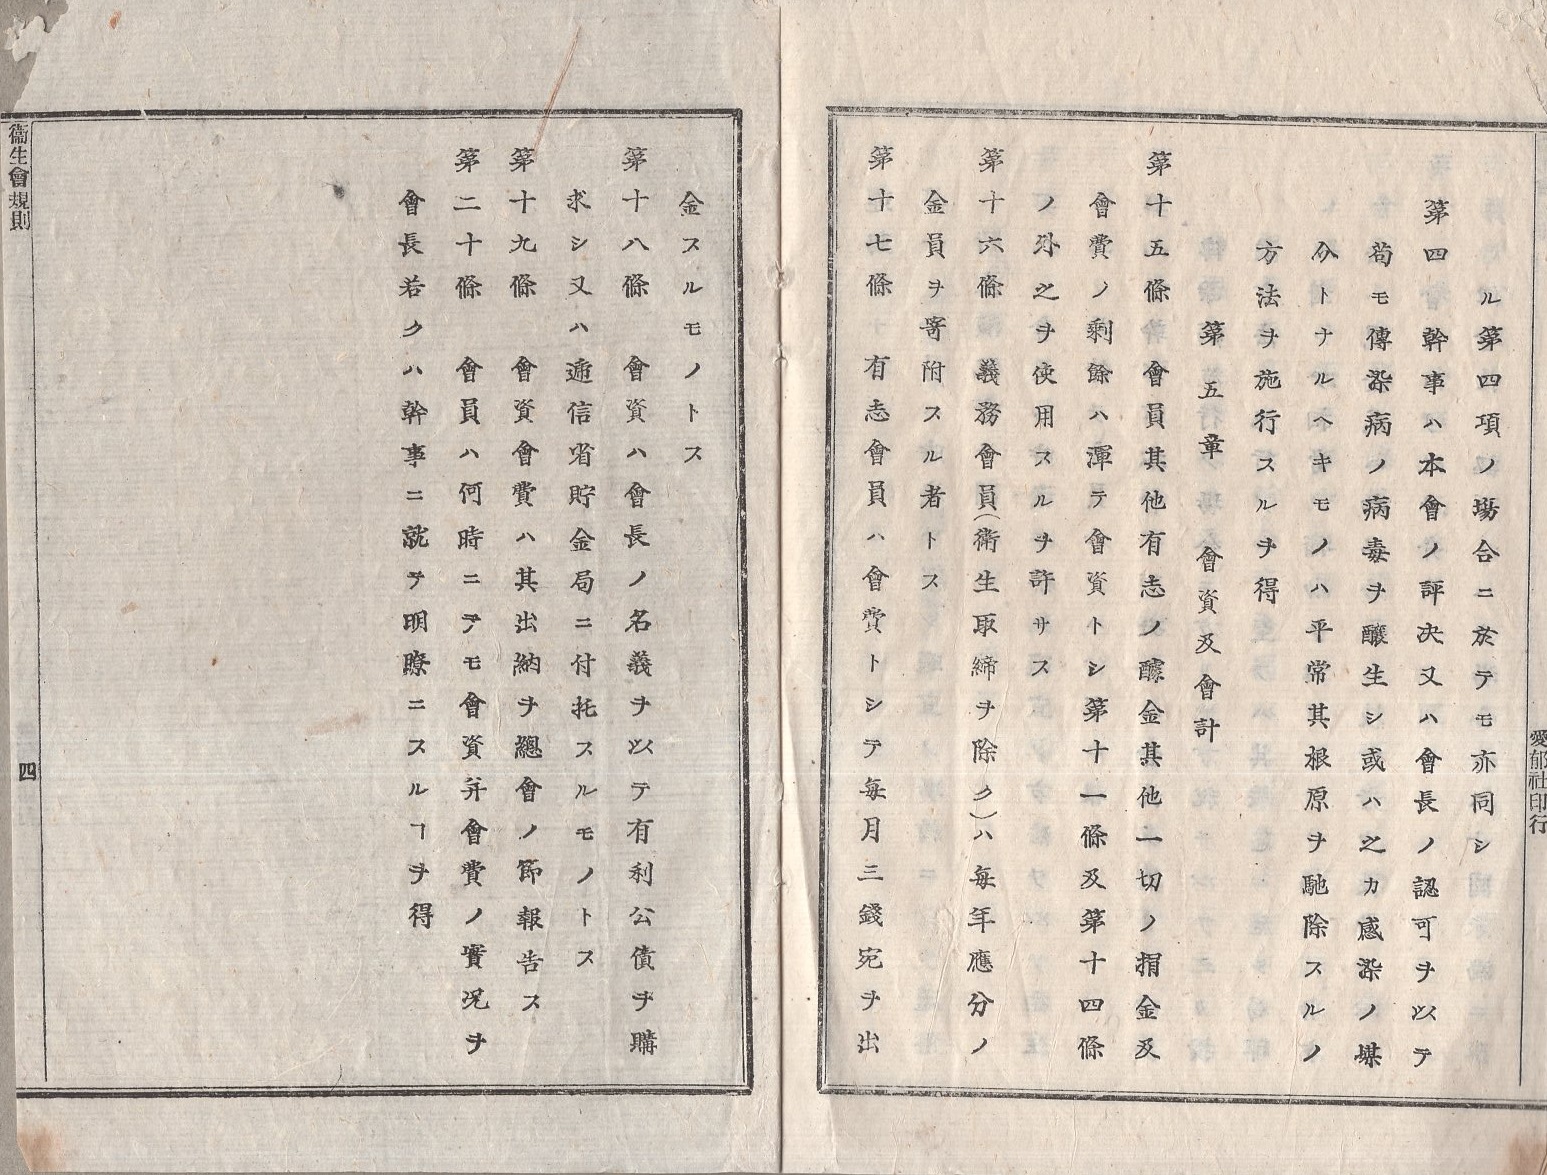 愛郁社印行
ル第四項ノ塲合ニ於テモ亦同シ
第四　幹事ハ本會ノ評决又ハ會長ノ認可ヲ以テ
苟モ傳染病ノ病毒ヲ釀生シ或ハ之カ感染ノ媒
介トナルヘキモノハ平常其根原ヲ馳除スルノ
方法ヲ施行スルヲ得
第五章　會資及會計
第十五條　會員其他有志ノ醵金其他一切ノ捐金及
會費ノ剩餘ハ渾テ會資トシ第十一條及第十四條
ノ外之ヲ使用スルヲ許サス
第十六條　義務會員(衛生取締ヲ除ク)ハ毎年應分ノ
金員ヲ寄附スル者トス
第十七條　有志會員ハ會費トシテ毎月三錢宛ヲ出
金スルモノトス
第十八條　會資ハ會長ノ名義ヲ以テ有利公債ヲ購
求シ又ハ遞信省貯金局ニ付托スルモノトス
第十九條　會資會費ハ其出納ヲ總會ノ節報告ス
第二十條　會員ハ何時ニテモ會資并會費ノ實况ヲ
會長若クハ幹事ニ就テ明瞭ニスルヿヲ得
衞生會規則
四